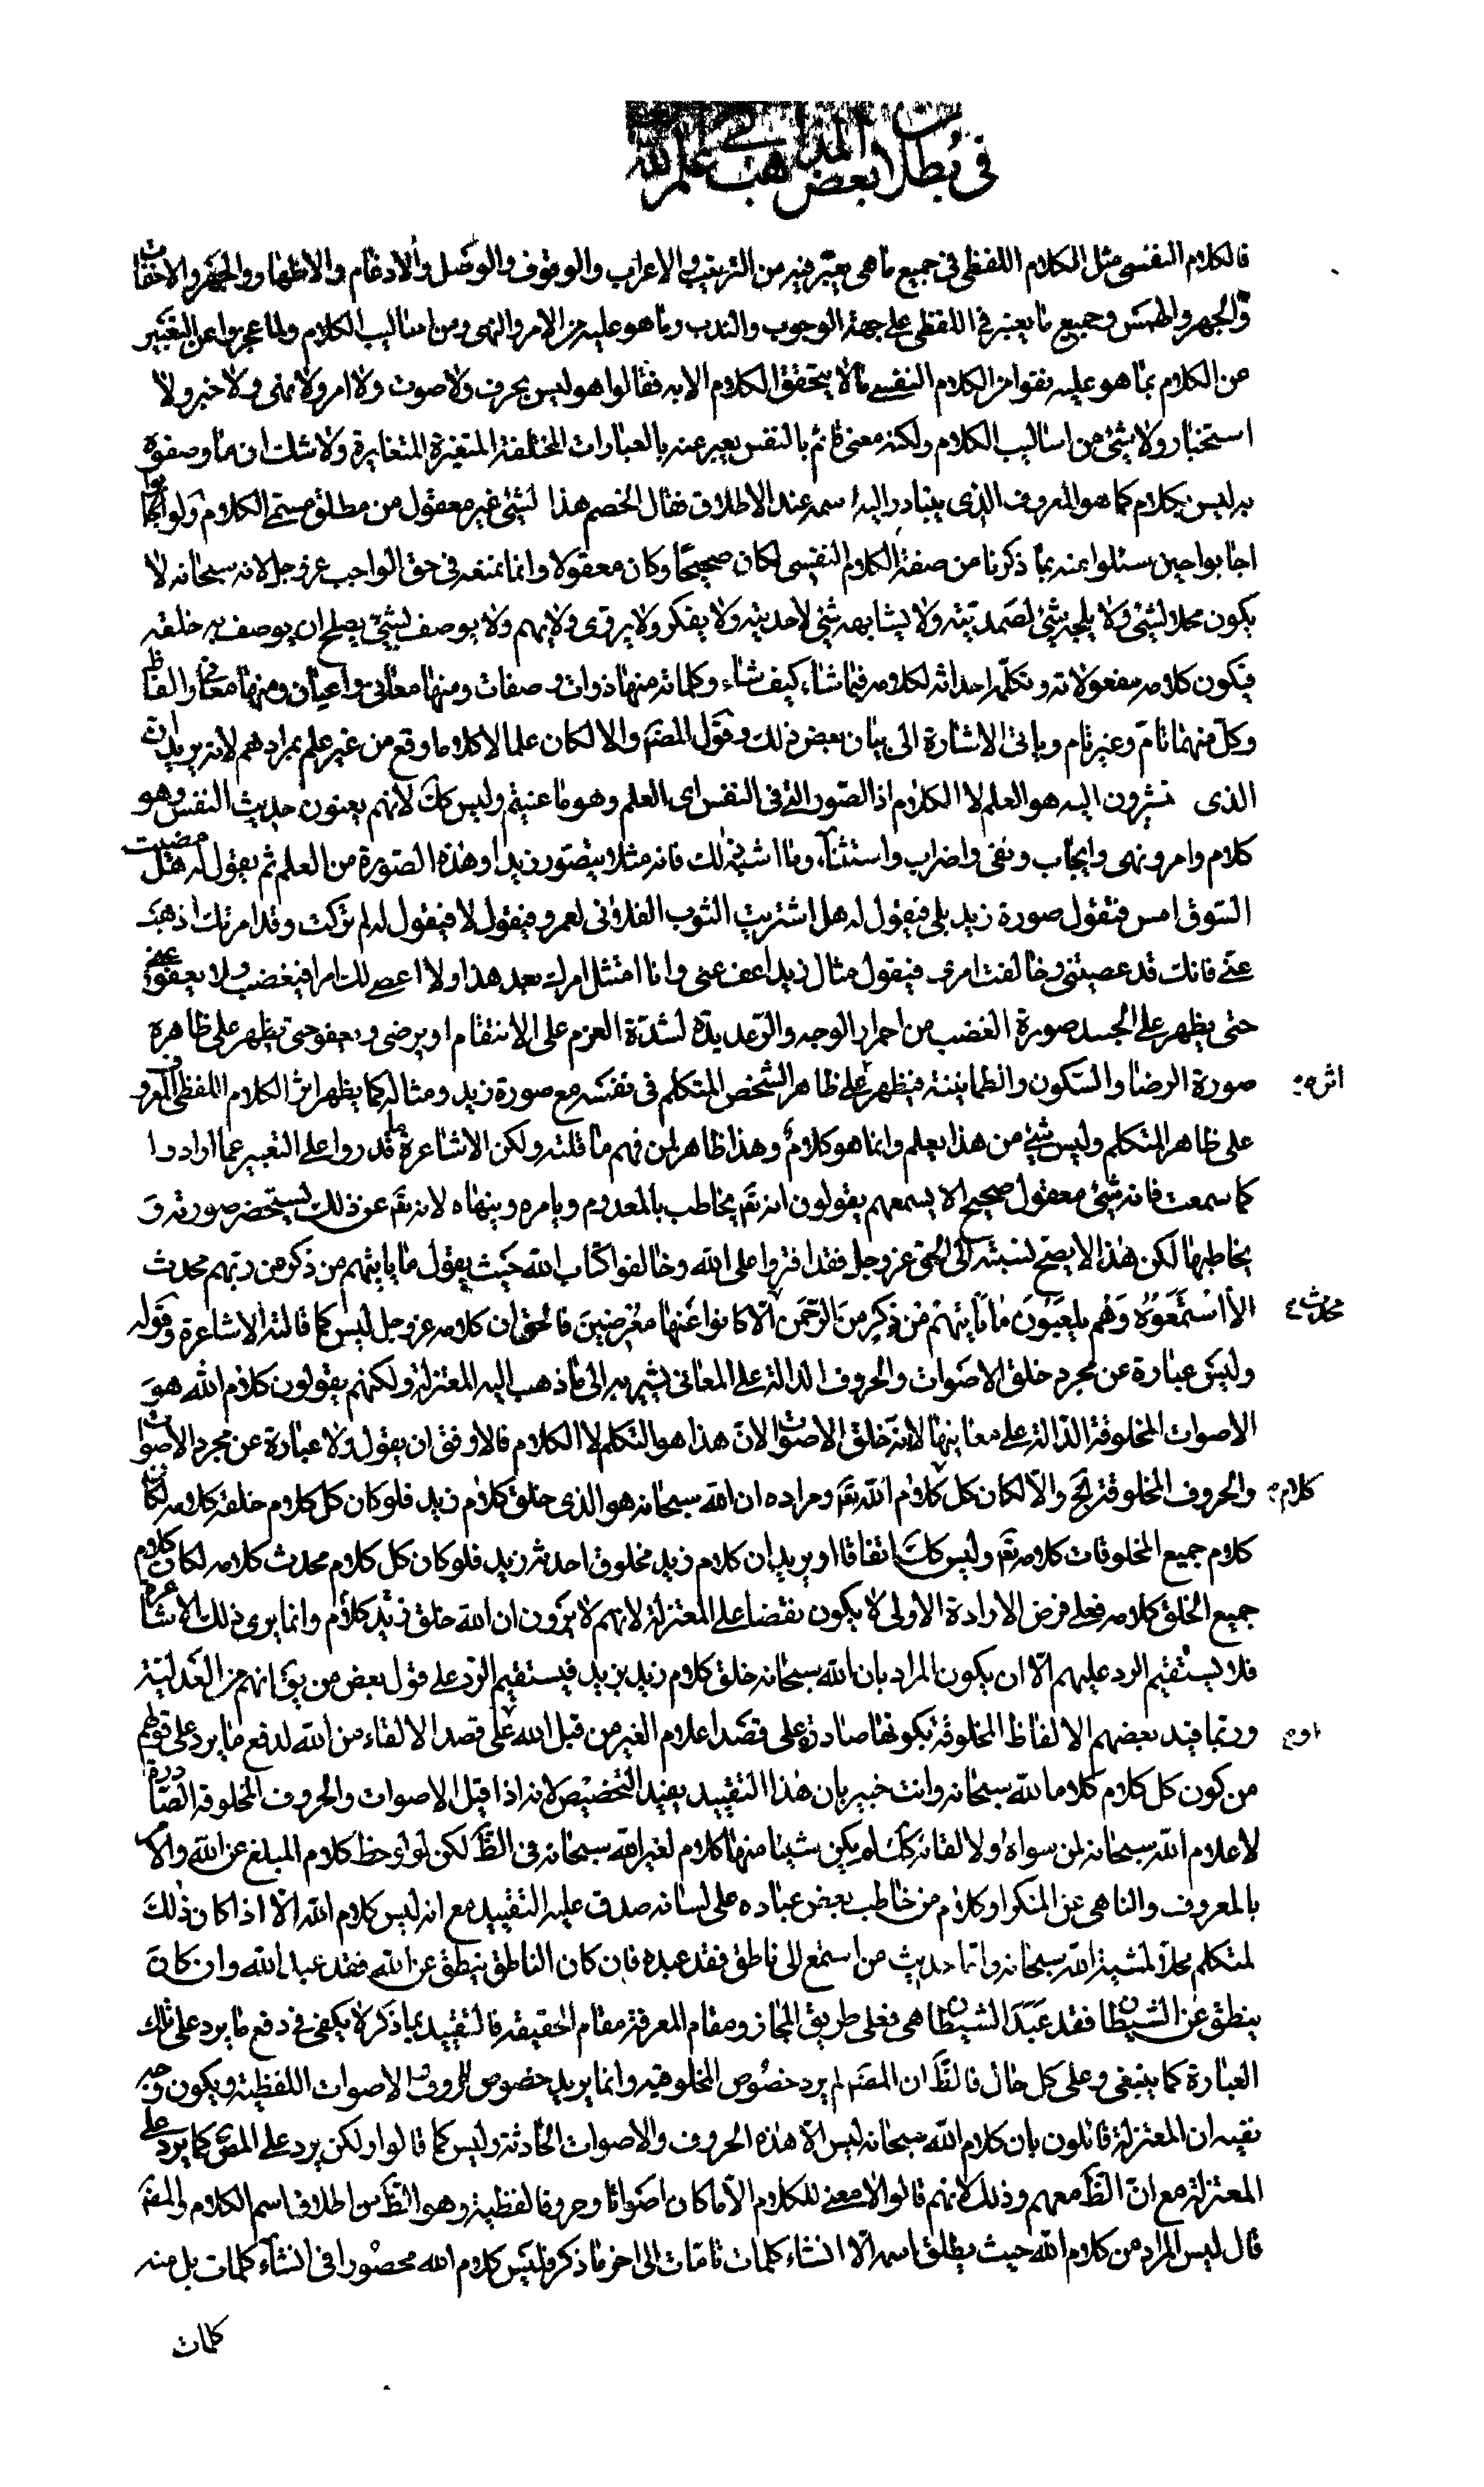 في بطلان بعض المذاهب في علم الله
فالكلام النفسي مثل الكلام اللفظي في جميع ما هي يعتبر فيه من الترتيب والاعراب والوقوف والوصل والادغام والاظهار والجهر والاخفات
والجهر والهمس وجميع ما يعتبر في اللفظي على جهة الوجوب والندب وما هو عليه من الامر والنهي ومن اساليب الكلام ولما عجزوا عن التعبير
من الكلام بما هو عليه نفوا من الكلام النفسي ما لا يتحقق الكلام الا به فقالوا هو ليس بحرف ولا صوت ولا امر ولا نهى ولا خبر ولا
استخبار ولا شئ من اساليب الكلام ولكنه معنى قائم بالنفس يعبر عنه بالعبارات المختلفة المتغيرة المتغايرة ولا شك ان ما وصفوه
به ليس بكلام كما هو المعروف الذي يتبادر اليه اسمه عند الاطلاق فقال الخصم هذا لشئ غير معقول من مطلق مسمى الكلام ولو اجابوا كما
اجابوا حين سئلوا عنه بما ذكرنا من صفة الكلام النفسي لكان صحيحا وكان معقولا وانما نمنعه في حق الواجب عز وجل لانه سبحانه لا
يكون محلا لشئ ولا يلجه شئ لصمديته ولا يشابهه شئ لاحديته ولا يفكر ولا يروى ولا يهم ولا يوصف بشئ يصلح ان يوصف به خلقه
فيكون كلامه مفعولاته وتكلمه احداثه لكلامه فيما شاء كيف شاء وكلماته منها ذوات وصفات ومنها معاني واعيان ومنها معاني والفاظ
وكل منهما تام وغير تام وياتي الاشارة الى بيان بعض ذلك وقول المصنف والا لكان علما لا كلاما وقع من غير علم بمرادهم لانه يريد ان
الذي تشيرون اليه هو العلم لا الكلام اذ الصور التي في النفس اي العلم وهو ما عنيتم وليس كك لانهم يعنون حديث النفس وهو
كلام وامر ونهي وايجاب ونفي واضراب واستثناء وما اشبه ذلك فانه مثلا يتصور زيدا وهذه الصورة من العلم ثم يقول له هل مضيت
السوق امس فتقول صورة زيد بلى فيقول له هل اشتريت الثوب الفلاني لعمرو فيقول لا فيقول له لم تركت وقد امرتك اذهب
عني فانك قد عصيتني وخالفت امري فيقول مثال زيد اعف عني وانا امتثل امرك بعد هذا ولا اعصي لك امرا فيغضب ولا يعفو عنه
حتى يظهر على الجسد صورة الغضب من احمرار الوجه والرعدة لشدة العزم على الانتقام او يرضى ويعفو حتى يظهر على ظاهره
صورة الرضا والسكون والطمانينة فيظهر على ظاهر الشخص المتكلم في نفسه مع صورة زيد ومثاله كما يظهر اثر الكلام اللفظي المعروف
اثره
على ظاهر المتكلم وليس شئ من هذا بعلم وانما هو كلام وهذا ظاهر لمن فهم ما قلته ولكن الاشاعرة ما قدروا على التعبير عما ارادوا
كما سمعت فانه شئ معقول صحيح الا يسمعهم يقولون انه تع يخاطب بالمعدوم ويامره وينهاه لانه تع عن ذلك يستحضر صورته و
يخاطبها لكن هذا لا يصح لنسبته الى الحق عز وجل فقد افتروا على الله وخالفوا كتاب الله حيث يقول ما ياتيهم من ذكر من ربهم محدث
الا استمعوه وهم يلعبون ما ياتيهم من ذكر من الرحمن الا كانوا عنها معرضين فالحق ان كلامه عز وجل ليس كما قالته الاشاعرة وقوله
محدث
وليس عبارة عن مجرد خلق الاصوات والحروف الدالة على المعاني يشير به الى ما ذهب اليه المعتزلة ولكنهم يقولون كلام الله هو
الاصوات المخلوقة الدالة على معانيها لا انه خلق الاصوات لان هذا هو التكلم لا الكلام فالاوفق ان يقول ولا عبارة عن مجرد الاصوات
والحروف المخلوقة الخ والا لكان كل كلام كلام الله تع ومراده ان الله سبحانه هو الذي خلق كلام زيد فلو كان كل كلام خلقه كلامه لكان
كلام
كلام جميع المخلوقات كلامه تع وليس كك اتفاقا او يريد ان كلام زيد مخلوق احدثه زيد فلو كان كل كلام محدث كلامه لكان كلام
جميع الخلق كلامه فعلى فرض الارادة الاولى لا يكون نقضا على المعتزلة لانهم لا يرون ان الله خلق زيد كلام وانما يرى ذلك الاشاعرة
فلا يستقيم الرد عليهم الا ان يكون المراد بان الله سبحانه خلق كلام زيد بزيد فيستقيم الرد على قول بعض من يق انهم من العدلية
وربما قيد بعضهم الالفاظ المخلوقة بكونها صادرة على قصد اعلام الغير من قبل الله على قصد الالقاء من الله لدفع ما يرد على قولهم
او
من كون كل كلام كلاما لله سبحانه وانت خبير بان هذا التقييد يفيد التخصيص لانه اذا قيل الاصوات والحروف المخلوقة الصادرة
لاعلام الله سبحانه لمن سواه او لالقائه كك لم يكن شيئا منها كلام لغير الله سبحانه في الظ لكن لو لوحظ كلام المبلغ عن الله والامر
بالمعروف والناهي عن المنكر او كلام من خاطب بعض عباده على لسانه صدق عليه التقييد مع انه ليس كلام الله الا اذا كان ذلك
لمتكلم محلا لمشية الله سبحانه واما حديث من استمع الى ناطق فقد عبده فان كان الناطق ينطق عن الله فقد عبد الله وان كان
ينطق عن الشيطان فقد عبد الشيطان هي فعلى طريق المجاز ومقام المعرفة مقام الحقيقة فالتقييد بما ذكر لا يكفي في دفع ما يرد على تلك
العبارة كما ينبغي وعلى كل حال فالظ ان المصنف لم يرد خصوص المخلوقية وانما يريد خصوص الحروف الاصوات اللفظية ويكون وجه
نقيه ان المعتزلة قائلون بان كلام الله سبحانه ليس الا هذه الحروف والاصوات الحادثة وليس كما قالوا ولكن يرد على المصنف كما يرد على
المعتزلة مع ان الظ معهم وذلك لانهم قالوا لا معنى للكلام الا ما كان اصواتا وحروفا لفظية وهو الظ من اطلاق اسم الكلام والمصنف
قال ليس المراد من كلام الله حيث يطلق اسمه الا انشاء كلمات تامات الى اخر ما ذكر وليس كلام الله محصورا في انشاء كلمات بل منه
كلمات